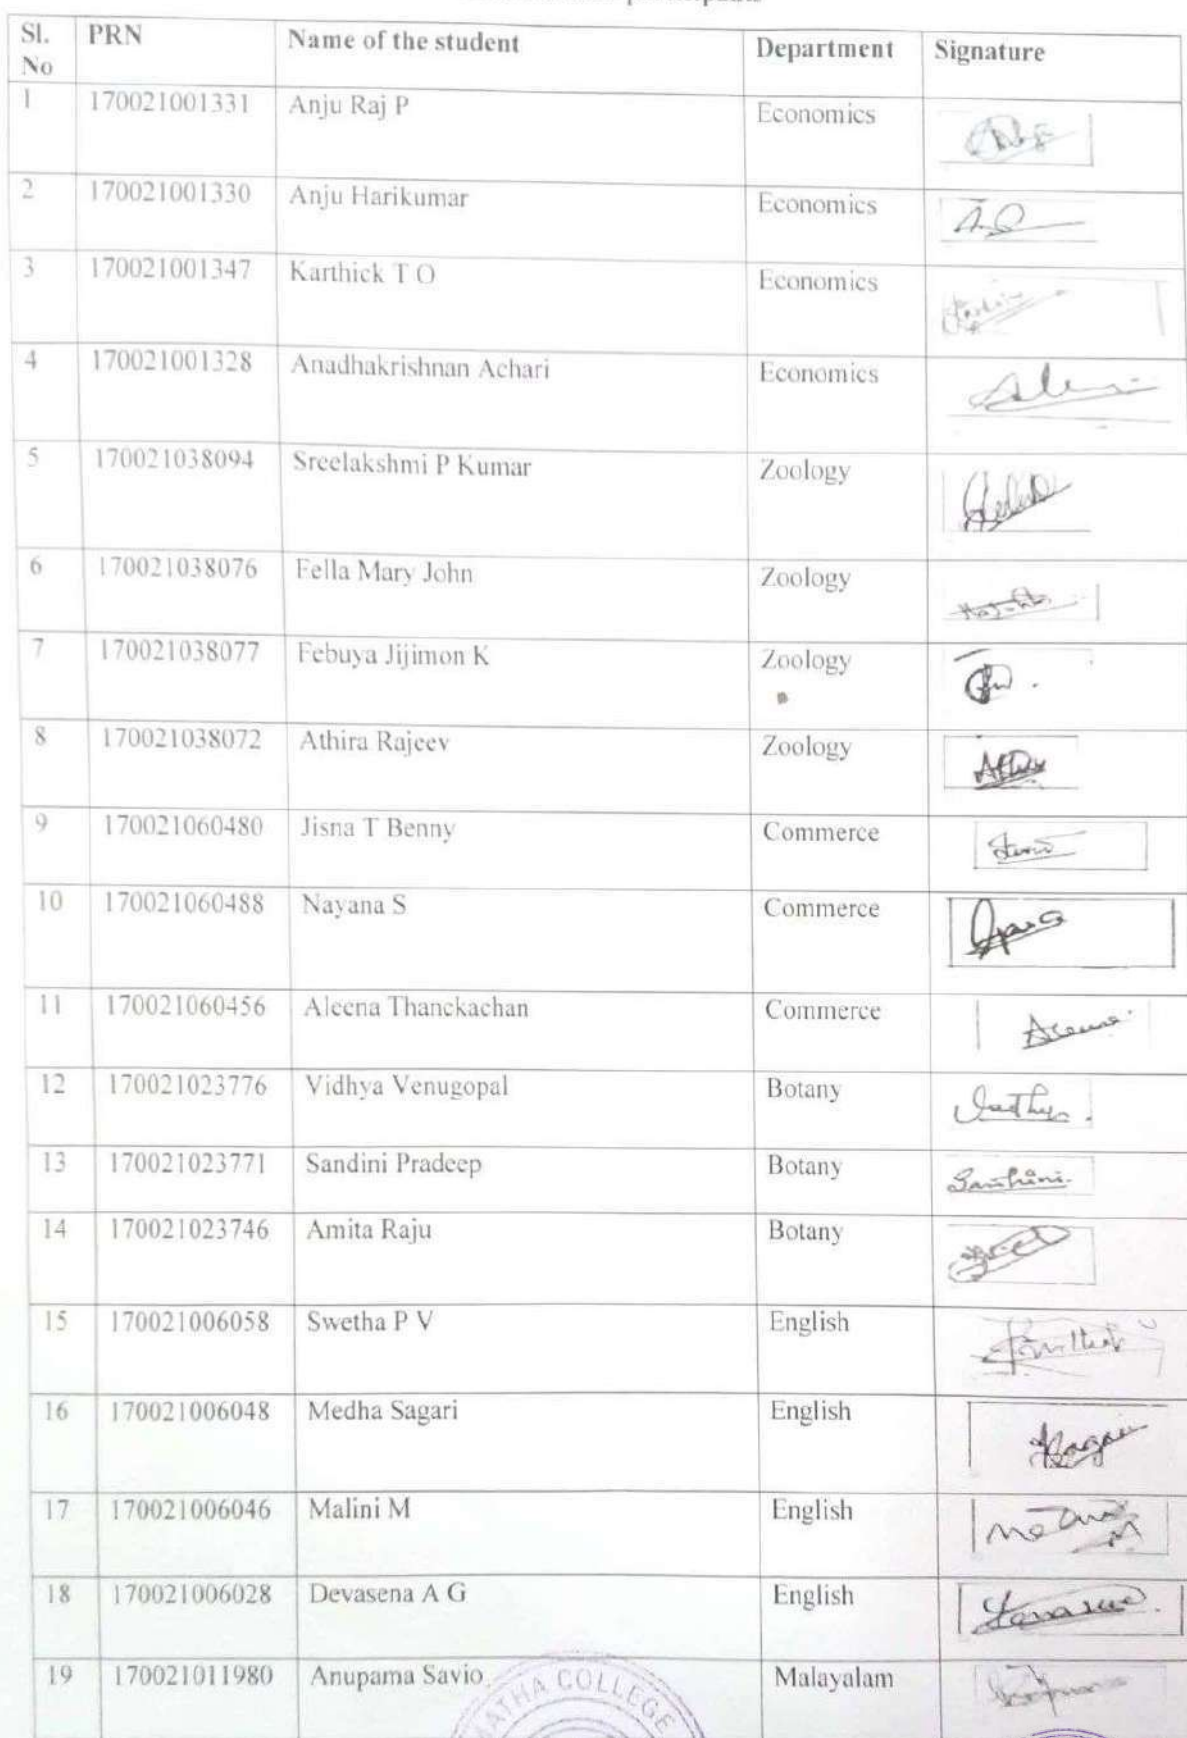 Sl. No PRN Name of the student Department Signature
1 170021001331 Anju Raj P Economics
2 170021001330 Anju Harikumar Economics
3 170021001347 Karthick T O Economics
4 170021001328 Anadhakrishnan Achari Economics
5 170021038094 Sreelakshmi P Kumar Zoology
6 170021038076 Fella Mary John Zoology
7 170021038077 Febuya Jijimon K Zoology
8 170021038072 Athira Rajeev Zoology
9 170021060480 Jisna T Benny Commerce
10 170021060488 Nayana S Commerce
11 170021060456 Aleena Thanckachan Commerce
12 170021023776 Vidhya Venugopal Botany
13 170021023771 Sandini Pradeep Botany
14 170021023746 Amita Raju Botany
15 170021006058 Swetha P V English
16 170021006048 Medha Sagari English
17 170021006046 Malini M English
18 170021006028 Devasena A G English
19 170021011980 Anupama Savio Malayalam
MATHA COLLEGE